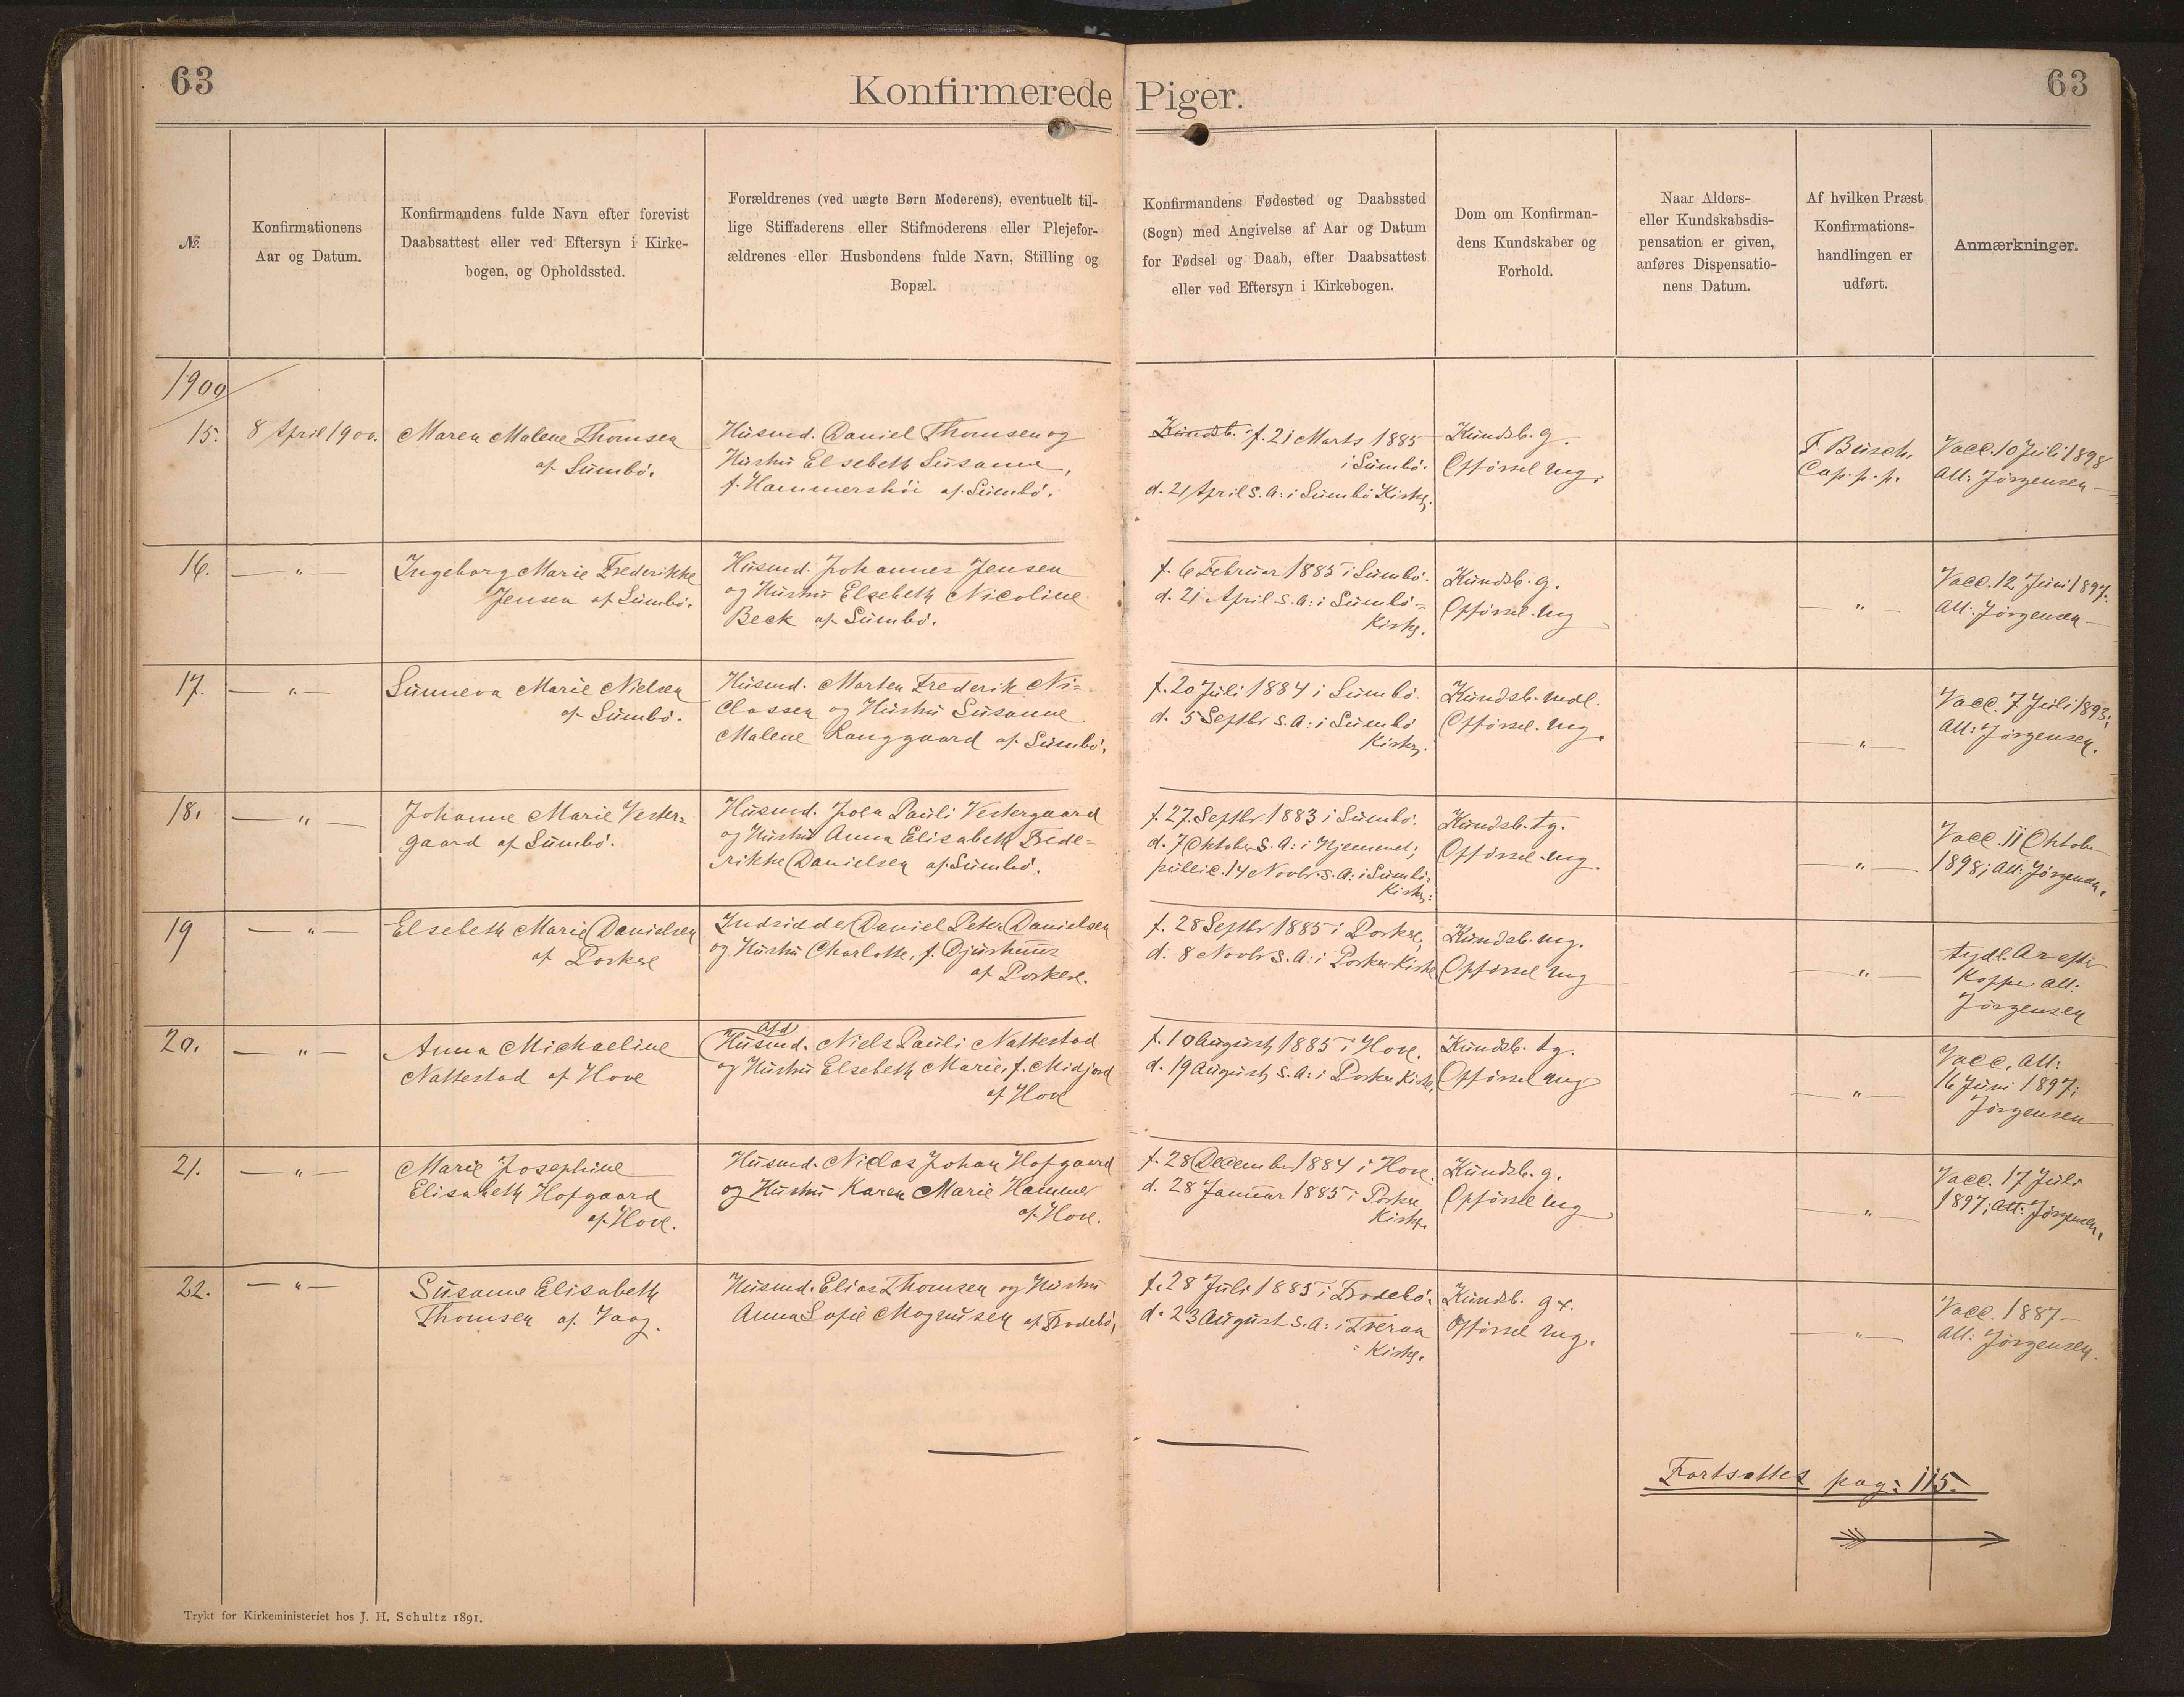 63
Konfirmerede Piger.
63
№.
Konfirmationens
Aar og Datum.
Konfirmandens fulde Navn efter forevist
Daabsattest eller ved Eftersyn i Kirke-
bogen, og Opholdssted.
Forældrenes (ved uægte Børn Moderens), eventuelt til-
lige Stiffaderens eller Stifmoderens eller Plejefor-
ældrenes eller Husbondens fulde Navn, Stilling og
Bopæl.
Konfirmandens Fødested og Daabssted
(Sogn) med Angivelse af Aar og Datum
for Fødsel og Daab, efter Daabsattest
eller ved Eftersyn i Kirkebogen.
Dom om Konfirman-
dens Kundskaber og
Forhold.
Naar Alders-
eller Kundskabsdis-
pensation er given,
anføres Dispensatio-
nens Datum.
Af hvilken Præst
Konfirmations-
handlingen er
udført.
Anmærkninger.
1900
15.
8 April 1900.
Maren Malene Thomsen
af Sumbö.
Husmd. Daniel Thomsen og
Hustru Elsebeth Susanne,
f. Hammershöi af Sumbö.
Kundsk. f. 21 Marts 1885
i Sumbö.
d. 21 April s. A: i Sumbö Kirke.
Kundsk. g.
Opförsel mg.
F. Busch,
Cap. p. p.
Vacc. 10 Juli 1898
Att: Jörgensen —
16.
— " 
Ingeborg Marie Frederikke
Jensen af Sumbö.
Husmd. Johannes Jensen
og Hustru Elsebeth Nicoline
Beck af Sumbö.
f. 6 Februar 1885 i Sumbö.
d. 21 April s. A: i Sumbö=
Kirke.
Kundsk. g.
Opförsel. mg
— " —
Vacc. 12 Juni 1897.
Att: Jörgensen —
17.
— " —
Sunneva Marie Nielsen
af Sumbö.
Husmd. Morten Frederik Ni=
classen og Hustru Susanne
Malene Langgaard af Sumbö.
f. 20 Juli 1884 i Sumbö.
d. 5 Septbr s. A: i Sumbö
Kirke.
Kundsk. mdl.
Opförsel. mg.
— " —
Vacc. 7 Juli 1893;
Att: Jörgensen.
18.
— " —
Johanne Marie Vester=
gaard af Sumbö.
Husmd. Joen Pauli Vestergaard
og Hustru Anna Elisabeth Frede=
rikke Danielsen af Sumbö.
f. 27. Septbr. 1883 i Sumbö.
d. 7 Oktober s. A: i Hjemmet;
public. 14 Novbr. s. A: i Sumbö=
Kirke.
Kundsk. tg.
Opförsel. mg.
— " —
Vacc. 11 Oktober
1898; Att: Jörgensen.
19
— " —
Elsebeth Marie Danielsen
af Porkere
Indsidder Daniel Peter Danielsen
og Hustru Charlotte, f. Djurhuus
af Porkere.
f. 28 Septbr 1885 i Porkere,
d. 8 Novbr s. A: i Porkere Kirke
Kundsk. mg.
Opförsel mg
— " —
tydl. Ar efter
Kopper Att:
Jörgensen
20.
— " —
Anna Michaeline
Nattestad af Hove
afd
(Husmd. Niels Pauli Nattestad
og Hustru Elsebeth Marie, f. Midjord
af Hove
f. 10 August 1885 i Hove.
d. 19 August s. A: i Porkere Kirke.
Kundsk. tg.
Opförsel mg
— " —
Vacc. Att:
16 Juni 1897;
Jörgensen
21.
— " —
Marie Josephine
Elisabeth Hofgaard
af Hove.
Husmd. Niclas Johan Hofgaard
og Hustru Karen Marie Hammer
af Hove.
f. 28 December 1884 i Hove.
d. 28 Januar 1885 i Porkere
Kirke.
Kundsk. g.
Opförsel mg
— " —
Vacc. 17 Juli
1897; Att: Jörgensen.
22.
— " —
Susanne Elisabeth
Thomsen af Vaag.
Husmd. Elias Thomsen og Hustru
Anna Sofie Mognusen af Frodebö.
f. 28 Juli 1885 i Frodebö.
d. 23 August s. A: i Tveraa
= Kirke.
Kundsk. g+.
Opförsel mg.
— " —
Vacc. 1887 —
Att: Jörgensen.
Fortsattes pag: 115.
Trykt for Kirkeministeriet hos J. H. Schultz 1891.